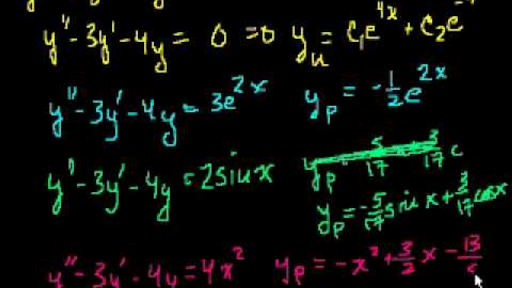 y'' - 3y' - 4y = 0 ⇒ y_h = C₁e^{4x} + C₂e^{-
y'' - 3y' - 4y = 3e^{2x} y_p = -\frac{1}{2}e^{2x}
y'' - 3y' - 4y = 2sin x
y_p = -\frac{5}{17}sin x + \frac{3}{17}cos x
y'' - 3y' - 4y = 4x² y_p = -x² + \frac{3}{2}x - 13